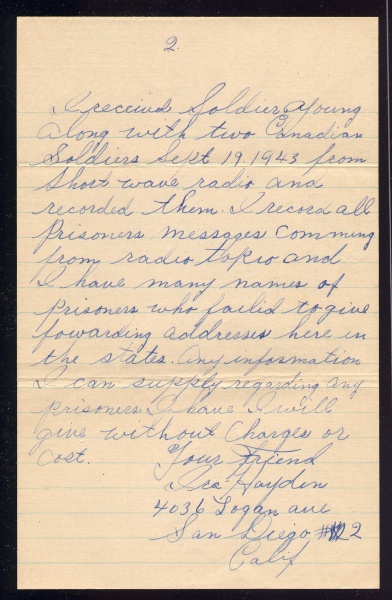 2.
I received Soldier Young
along with two Canadian
Soldiers Sept 19. 1943 from
short wave radio and
recorded them. I record all
prisoners messages comming
from radio tokio and
I have many names of
prisoners who failid to give
fowarding addresses here in
the states. Any information
I can supply regarding any
prisoners I have I will
give without charges or
cost. Your friend
Ira Hayden
4036 Logan ave
San Diego #2
Calif